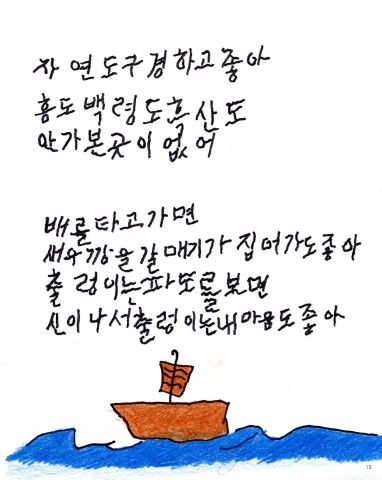 자연도구경하고좋아
홍도백령도흑산도
안가본곳이없어
배를타고가면
새우깡을갈매기가집어가도좋아
출렁이는파도를보면
신이나서출렁이는내마음도좋아
13